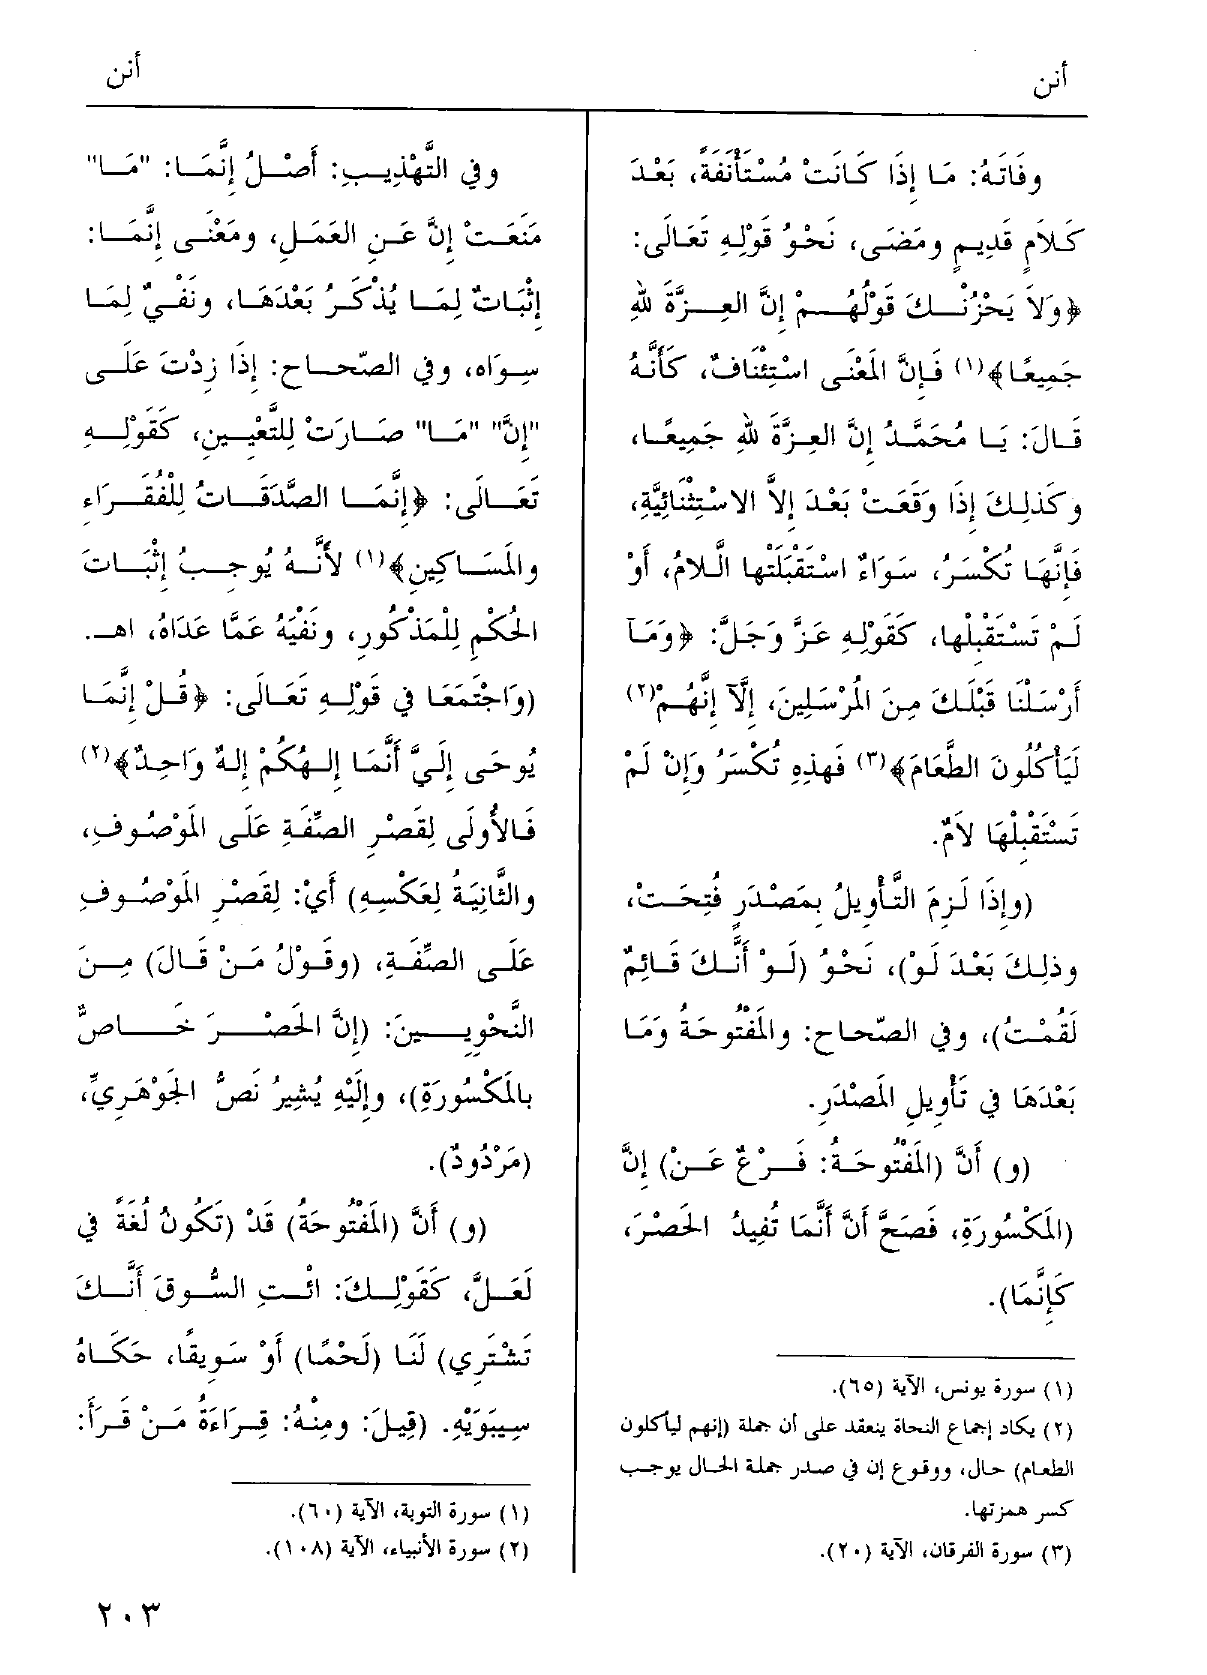 أنن
أنن
وفَاتَهُ: مَا إِذَا كَانَتْ مُسْتَأْنَفَةً، بَعْدَ
كَلَامٍ قَدِيمٍ ومَضَى، نَحْوُ قَوْلِهِ تَعَالَى:
﴿وَلاَ يَحْزُنْكَ قَوْلُهُمْ إِنَّ العِزَّةَ للهِ
جَمِيعًا﴾(١) فَإِنَّ المَعْنَى اسْتِئْنَافٌ، كَأَنَّهُ
قَالَ: يَا مُحَمَّدُ إِنَّ العِزَّةَ للهِ جَمِيعًا،
وكَذلِكَ إِذَا وَقَعَتْ بَعْدَ إِلاَّ الاسْتِثْنَائِيَّةِ،
فَإِنَّهَا تُكْسَرُ، سَوَاءٌ اسْتَقْبَلَتْها الَّلامُ، أَوْ
لَمْ تَسْتَقْبِلْها، كَقَوْلِهِ عَزَّ وَجَلَّ: ﴿وَمَآ
أَرْسَلْنَا قَبْلَكَ مِنَ الْمُرْسَلِينَ، إِلَّآ إِنَّهُمْ(٢)
لَيَأْكُلُونَ الطَّعَامَ﴾(٣) فَهذِهِ تُكْسَرُ وَإِنْ لَمْ
تَسْتَقْبِلْهَا لاَمٌ.
(وإِذَا لَزِمَ التَّأْوِيلُ بِمَصْدَرٍ فُتِحَتْ،
وذلِكَ بَعْدَ لَوْ)، نَحْوُ (لَوْ أَنَّكَ قَائِمٌ
لَقُمْتُ)، وفي الصّحاح: والمَفْتُوحَةُ وَمَا
بَعْدَهَا فِي تَأْوِيلِ المَصْدَرِ.
(و) أَنَّ (المَفْتُوحَةُ: فَرْعٌ عَنْ) إِنَّ
(المَكْسُورَةِ، فَصَحَّ أَنَّ أَنَّمَا تُفِيدُ الحَصْرَ،
كَإِنَّمَا).
(١) سورة يونس، الآية (٦٥).
(٢) يكاد إجماع النحاة ينعقد على أن جملة (إنهم ليأكلون
الطعام) حال، ووقوع إن في صدر جملة الحال يوجب
كسر همزتها.
(٣) سورة الفرقان، الآية (٢٠).
وفي التَّهْذِيبِ: أَصْلُ إِنَّمَا: "مَا"
مَنَعَتْ إِنَّ عَنِ العَمَلِ، ومَعْنَى إِنَّمَا:
إِثْبَاتٌ لِمَا يُذْكَرُ بَعْدَهَا، ونَفْيٌ لِمَا
سِوَاه، وفي الصّحاح: إِذَا زِدْتَ عَلَى
"إِنَّ" "مَا" صَارَتْ لِلتَّعْيِينِ، كَقَوْلِهِ
تَعَالَى: ﴿إِنَّمَا الصَّدَقَاتُ لِلْفُقَرَاءِ
والمَسَاكِينِ﴾(١) لأَنَّهُ يُوجِبُ إِثْبَاتَ
الحُكْمِ لِلمَذْكُورِ، ونَفْيَهُ عَمَّا عَدَاهُ، اهـ.
(وَاجْتَمَعَا فِي قَوْلِهِ تَعَالَى: ﴿قُلْ إِنَّمَا
يُوحَى إِلَيَّ أَنَّمَا إِلهُكُمْ إِلهٌ وَاحِدٌ﴾(٢)
فَالأُولَى لِقَصْرِ الصِّفَةِ عَلَى المَوْصُوفِ،
والثَّانِيَةُ لِعَكْسِهِ) أَيْ: لِقَصْرِ المَوْصُوفِ
عَلَى الصِّفَةِ، (وقَوْلُ مَنْ قَالَ) مِنَ
النَّحْوِيِينَ: (إِنَّ الحَصْرَ خَاصٌّ
بالمَكْسُورَةِ)، وإِلَيْهِ يُشِيرُ نَصُّ الجَوْهَرِيِّ،
(مَرْدُودٌ).
(و) أَنَّ (المَفْتُوحَةُ) قَدْ (تَكُونُ لُغَةً فِي
لَعَلَّ، كَقَوْلِكَ: ائْتِ السُّوقَ أَنَّكَ
تَشْتَرِي) لَنَا (لَحْمًا) أَوْ سَوِيقًا، حَكَاهُ
سِيبَوَيْهِ. (قِيلَ: ومِنْهُ: قِرَاءَةُ مَنْ قَرَأَ:
(١) سورة التوبة، الآية (٦٠).
(٢) سورة الأنبياء، الآية (١٠٨).
٢٠٣